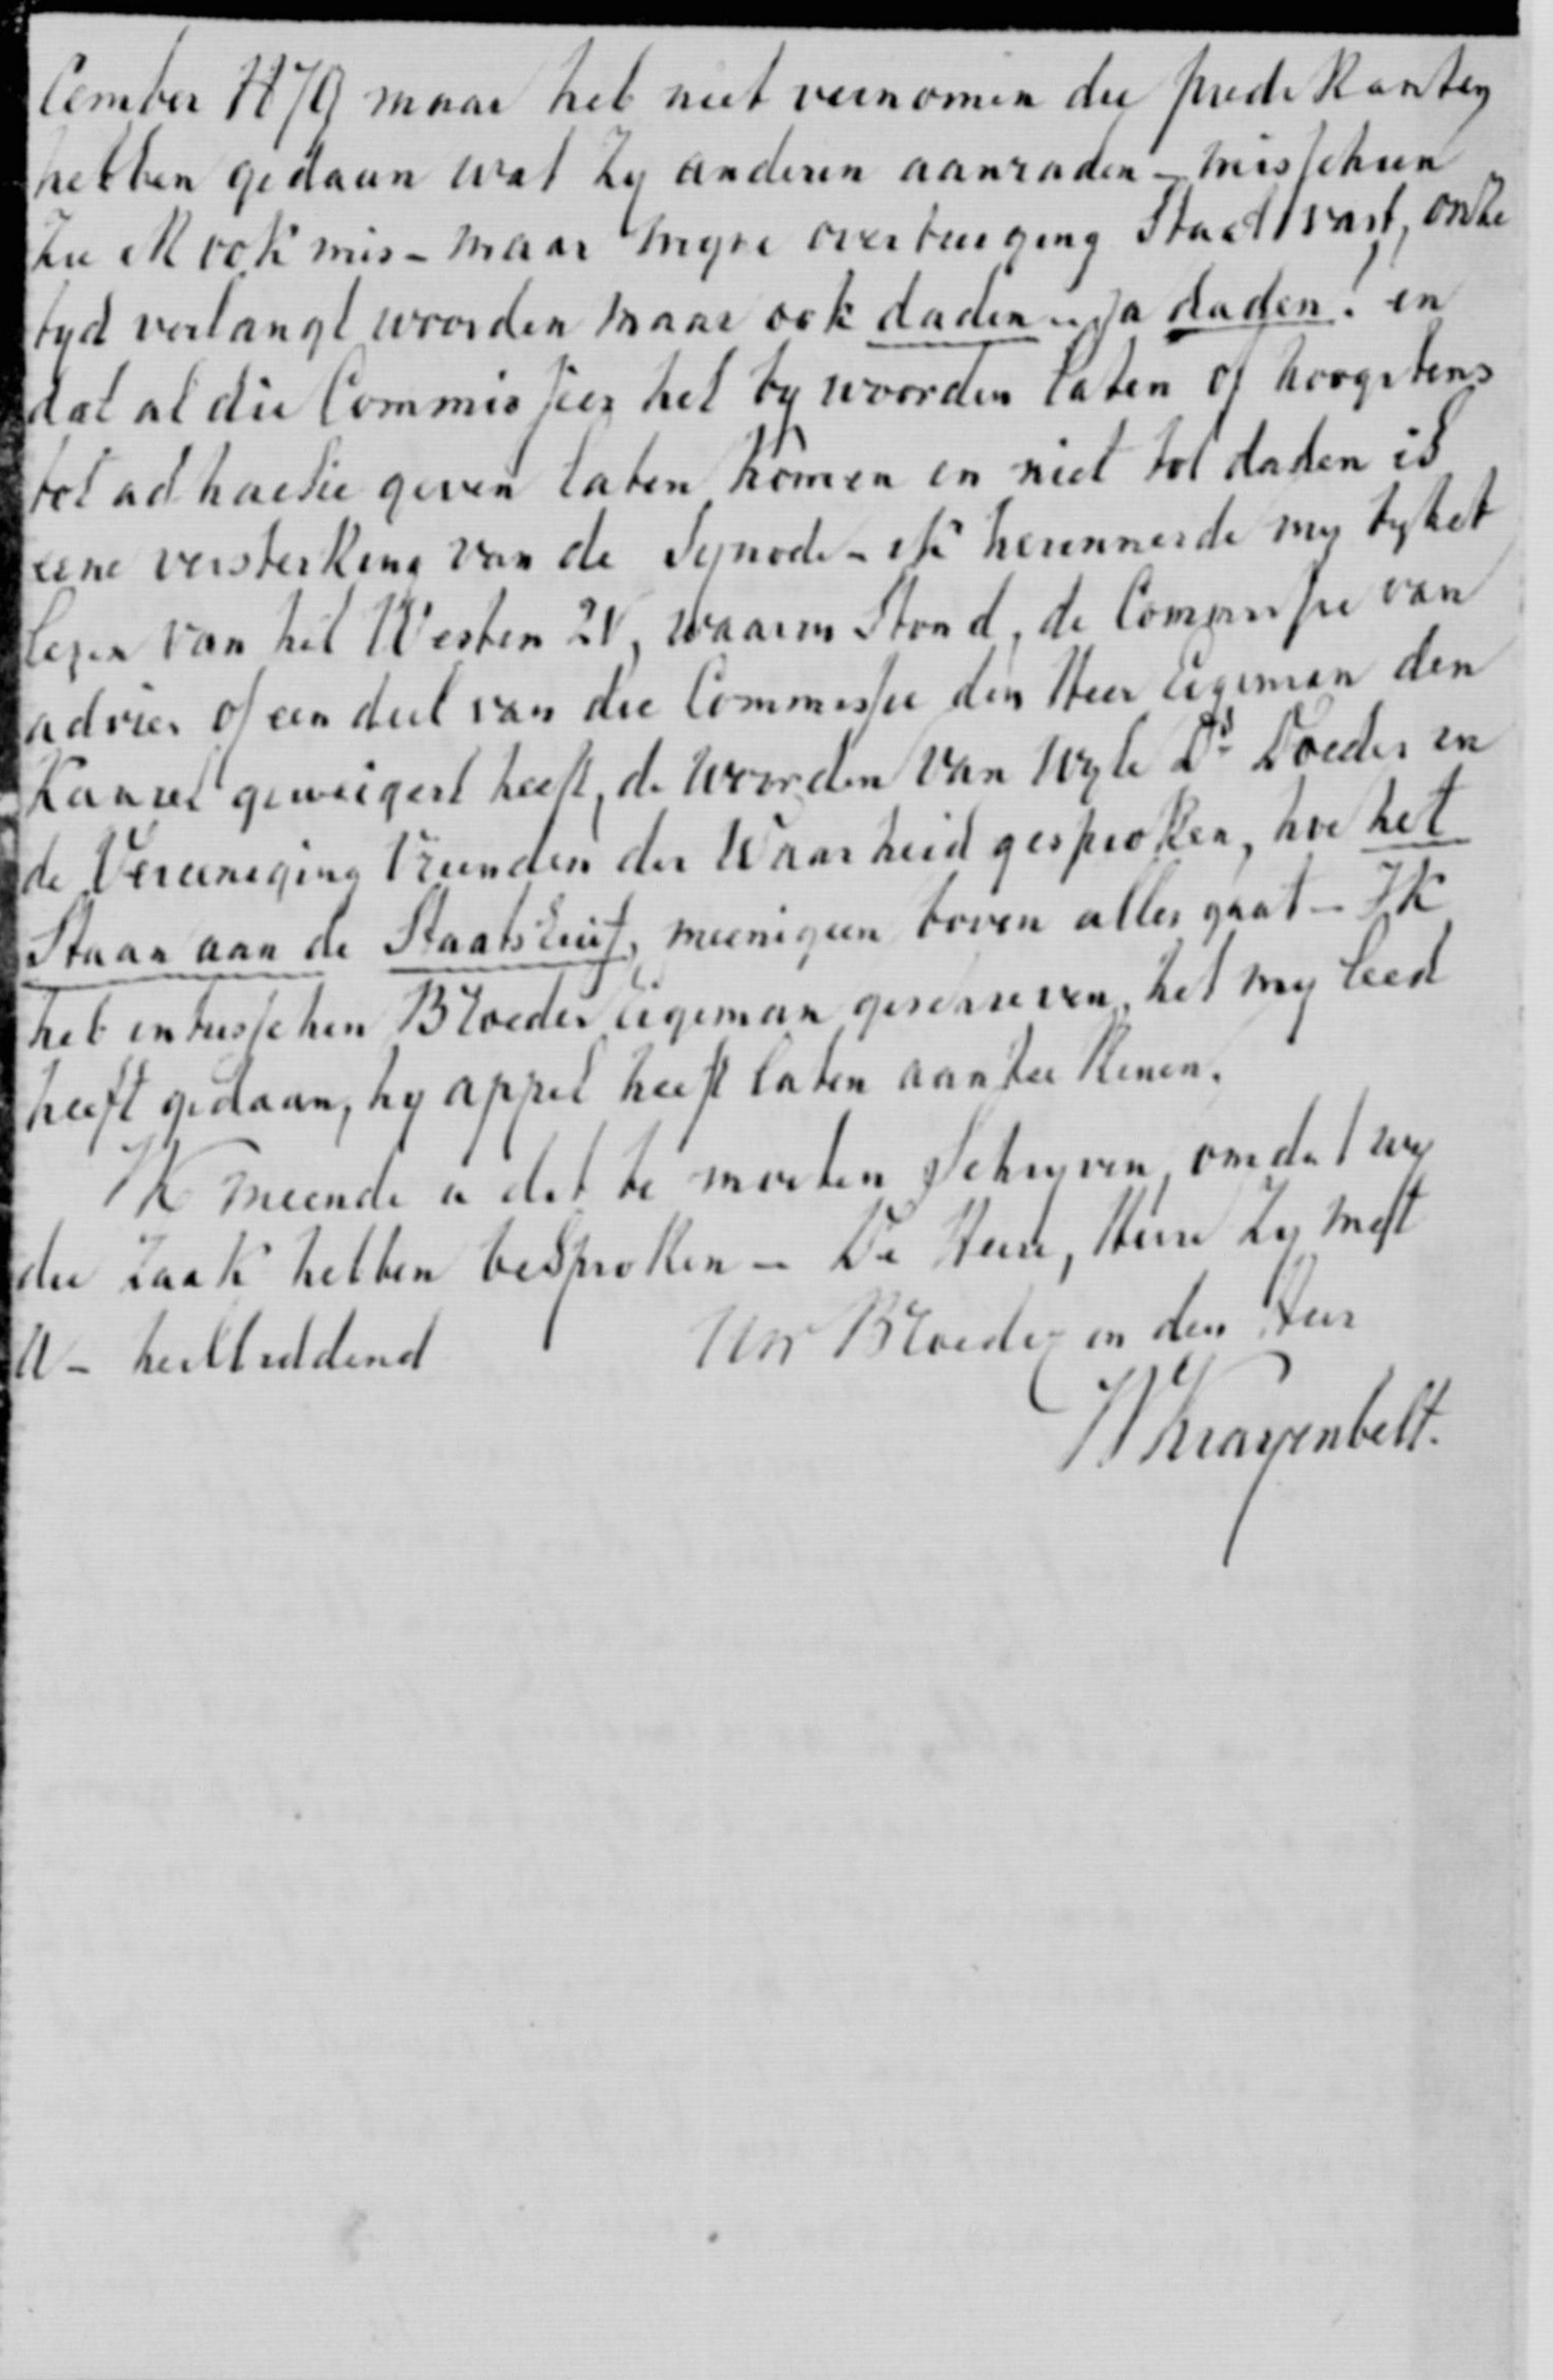 cember 1879 maar heb niet vernomen die predikanten
hebben gedaan wat zy anderen aanraden - misschien
zie ik ook mis - maar myne overtuiging staat vast, onze
tyd verlangt woorden maar ook daden - ja daden! en
dat al die Commissies het by woorden laten of hoogstens
tot adhaesie geven laten komen en niet tot daden is
eene versterking van de Synode - ik herinnerde my by het
lezen van het Westen 21, waarin stond, de Commissie van
advies of een deel van die Commissie den Heer Eigeman den
Kansel geweigert heeft, de woorden van Wyle Ds Doedes in
de Vereeniging Vrienden der Waarheid gesproken, hoe het
Staan aan de Staatsruif, meenigeen boven alles gaat - Ik
heb intusschen Broeder Eigeman geschreven, het my leed
heeft gedaan, hy appel heeft laten aanteekenen.
Ik meende u dat te moeten schryven, omdat wy
die zaak hebben besproken - De Heere, Heere zy mest
U - heilbiddend Uw Broeder in den Heer
W Kraayenbelt.